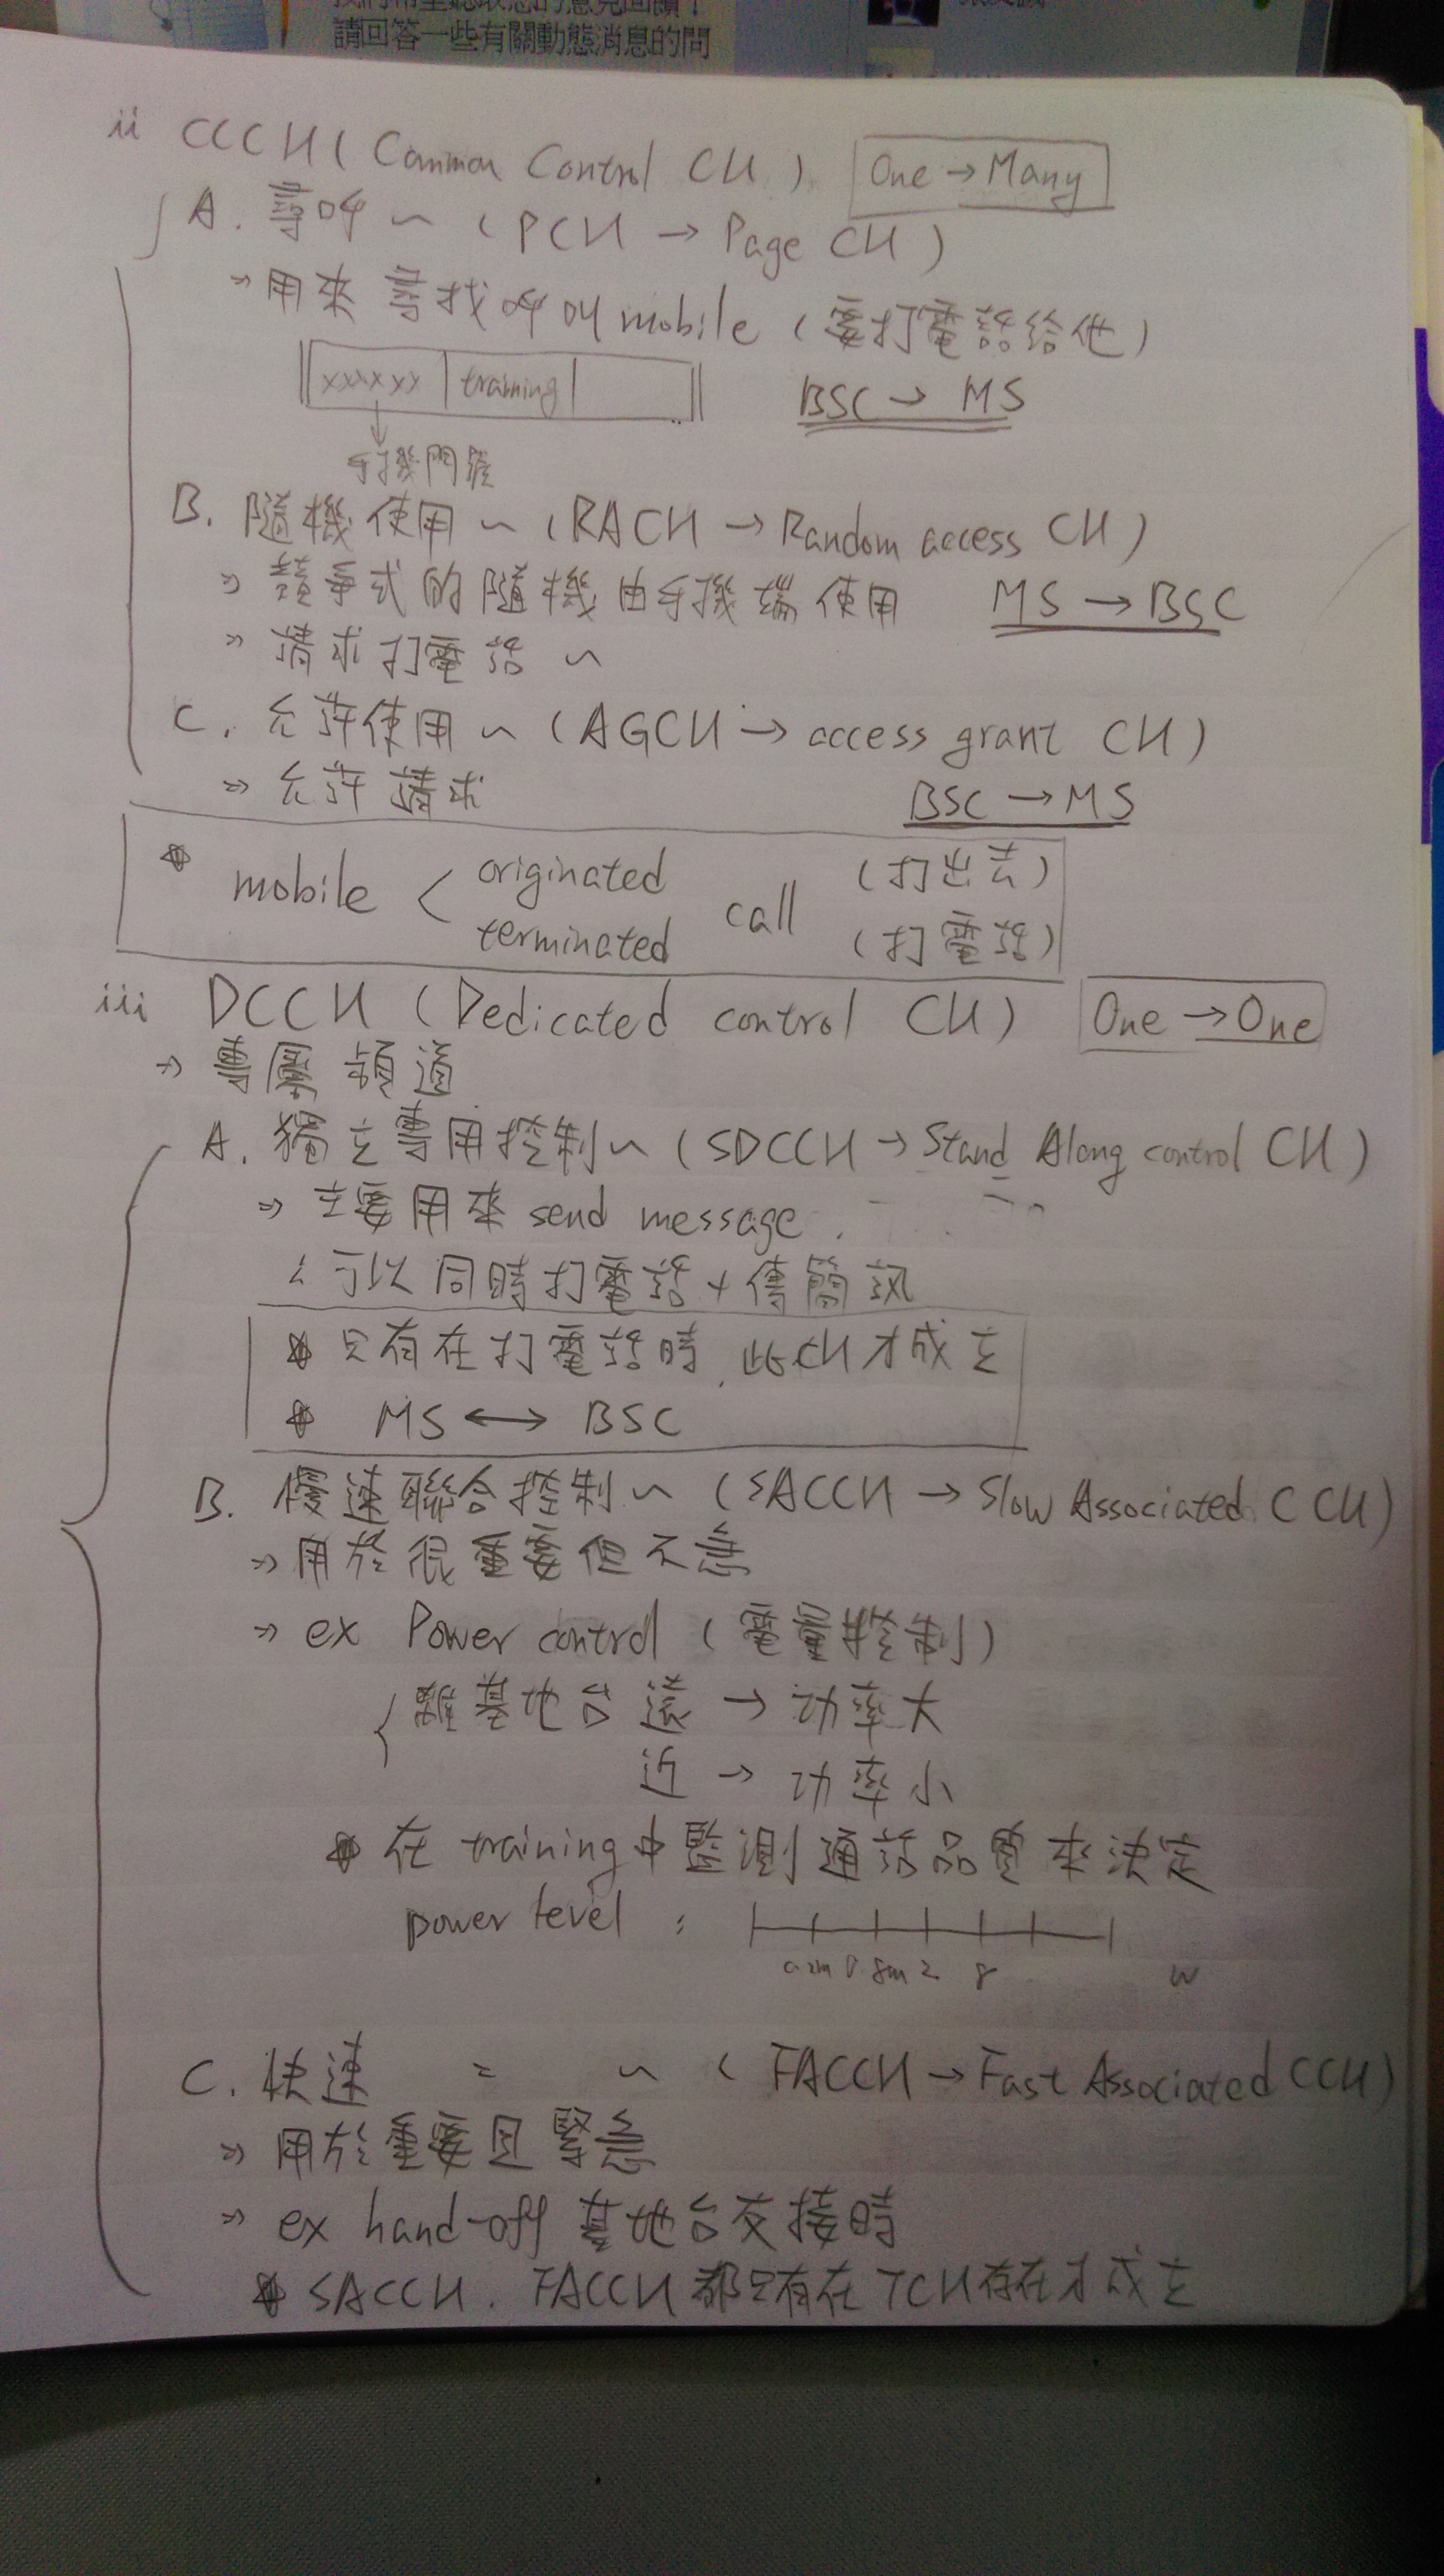 請回答一些有關動態消息的問
ii CCCH ( Common Control CH ) One → Many
A. 尋呼 ~ ( PCH → Page CH )
⇒ 用來尋找呼叫 mobile ( 要打電話給他 )
xxxxxx training
BSC → MS
手機門號
B. 隨機使用 ~ ( RACH → Random access CH )
⇒ 競爭式的隨機由手機端使用 MS → BSC
⇒ 請求打電話 ~
C. 允許使用 ~ ( AGCH → access grant CH )
⇒ 允許請求 BSC → MS
* mobile < originated call (打出去)
terminated (打電話)
iii DCCH ( Dedicated control CH ) One → One
→ 專屬頻道
A. 獨立專用控制 ~ ( SDCCH → Stand Along control CH )
⇒ 主要用來 send message.
∴可以同時打電話 + 傳簡訊
* 只有在打電話時, 此CH才成立
* MS ↔ BSC
B. 慢速聯合控制 ~ ( SACCH → Slow Associated CCH )
⇒ 用於很重要但不急
⇒ ex Power control ( 電量控制 )
{ 離基地台遠 → 功率大
近 → 功率小
* 在 training 中監測通話品質來決定
power level :
2 8 W
C. 快速 = ~ ( FACCH → Fast Associated CCH )
⇒ 用於重要且緊急
⇒ ex hand-off 基地台交接時
* SACCH. FACCH 都只有在 TCH 存在才成立